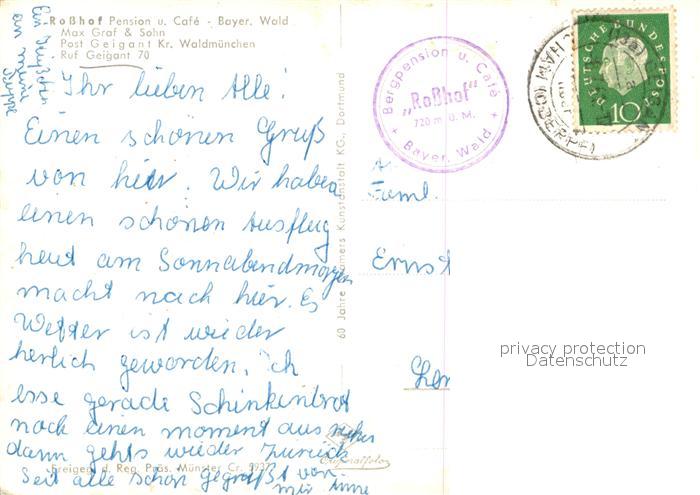 Roßhof Pension u. Café - Bayer. Wald
Max Graf & Sohn
Post Geigant Kr. Waldmünchen
Ruf Geigant 70
an meine
Ihr lieben Alle!
Einen schönen Gruß
von hier. Wir haben
einen schönen Ausflug
heut am Sonnabendmorgen
macht nach hier. Es
Wetter ist wieder
herlich geworden. ich
esse gerade Schinkenbrot
noch einen moment aus
dann gehts wieder zurück
Seit alle schön gegrüßt von
mir
Freigeg. d. Reg. Präs. Münster Cr. 9937
60 Jahre Cramers Kunstanstalt KG., Dortmund
Bergpension u. Café
„Roßhof"
720 m ü. M.
+ Bayer. Wald +
CHAM (OBERPF)
DEUTSCHE BUNDESPOST
10
Faml.
Ernst
privacy protection
Datenschutz